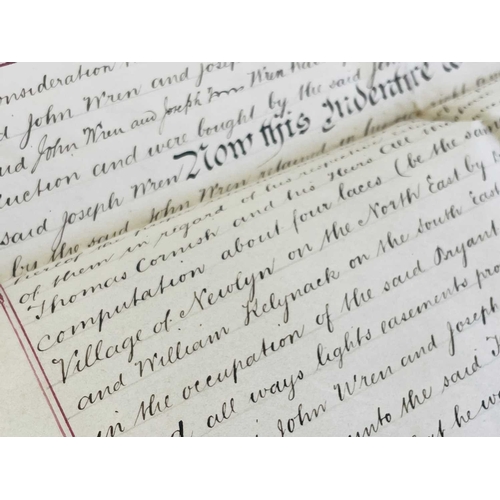 consideration
John Wren and Joseph
said John Wren and Joseph Wren
auction and were bought by the said
said Joseph Wren Now this Indenture
by the said John Wren
of them in regard of his Heirs
Thomas Cornish and his Heirs all
computation about four laces (be the same
Village of Newlyn on the North East by
and William Kelynack on the south East
in the occupation of the said Bryant
all ways lights easements
John Wren and Joseph
unto the said
he